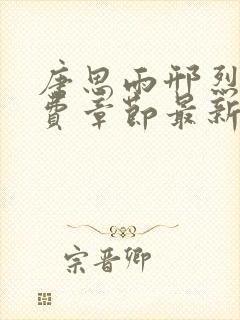 唐思雨邢烈
費章節最新
宗晋卿